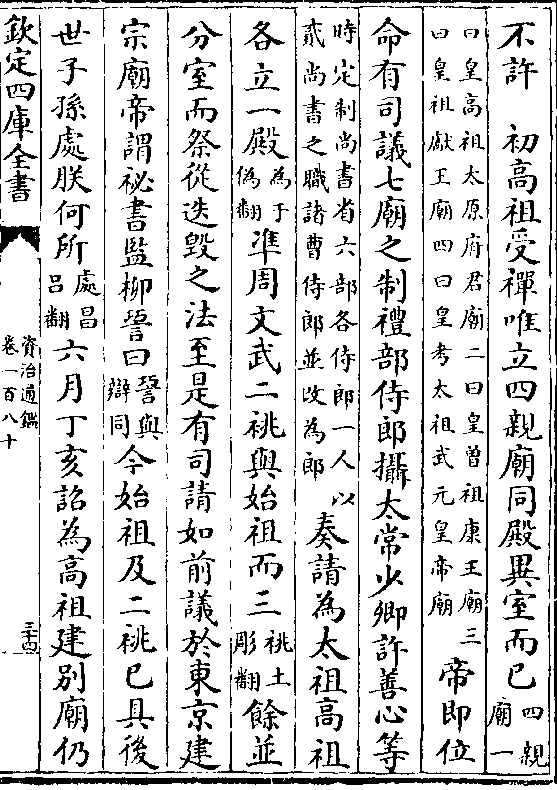 不許　初高祖受禪唯立四親廟同殿異室而已四親廟一
曰皇高祖太原府君廟二曰皇曾祖康王廟三曰皇祖獻王廟四曰皇考太祖武元皇帝廟帝即位
命有司議七廟之制禮部侍郎攝太常少卿許善心等
時定制尚書省六部各侍郎一人以貳尚書之職諸曹侍郎並改為郎奏請為太祖高祖
各立一殿為于偽翻凖周文武二祧與始祖而三祧土彫翻餘並
分室而祭從迭毀之法至是有司請如前議於東京建
宗廟帝謂祕書監柳䛒曰䛒與辯同今始祖及二祧已具後
世子孫處朕何所處昌呂翻六月丁亥詔為高祖建別廟仍
欽定四庫全書
資治通鑑
卷一百八十
三十四